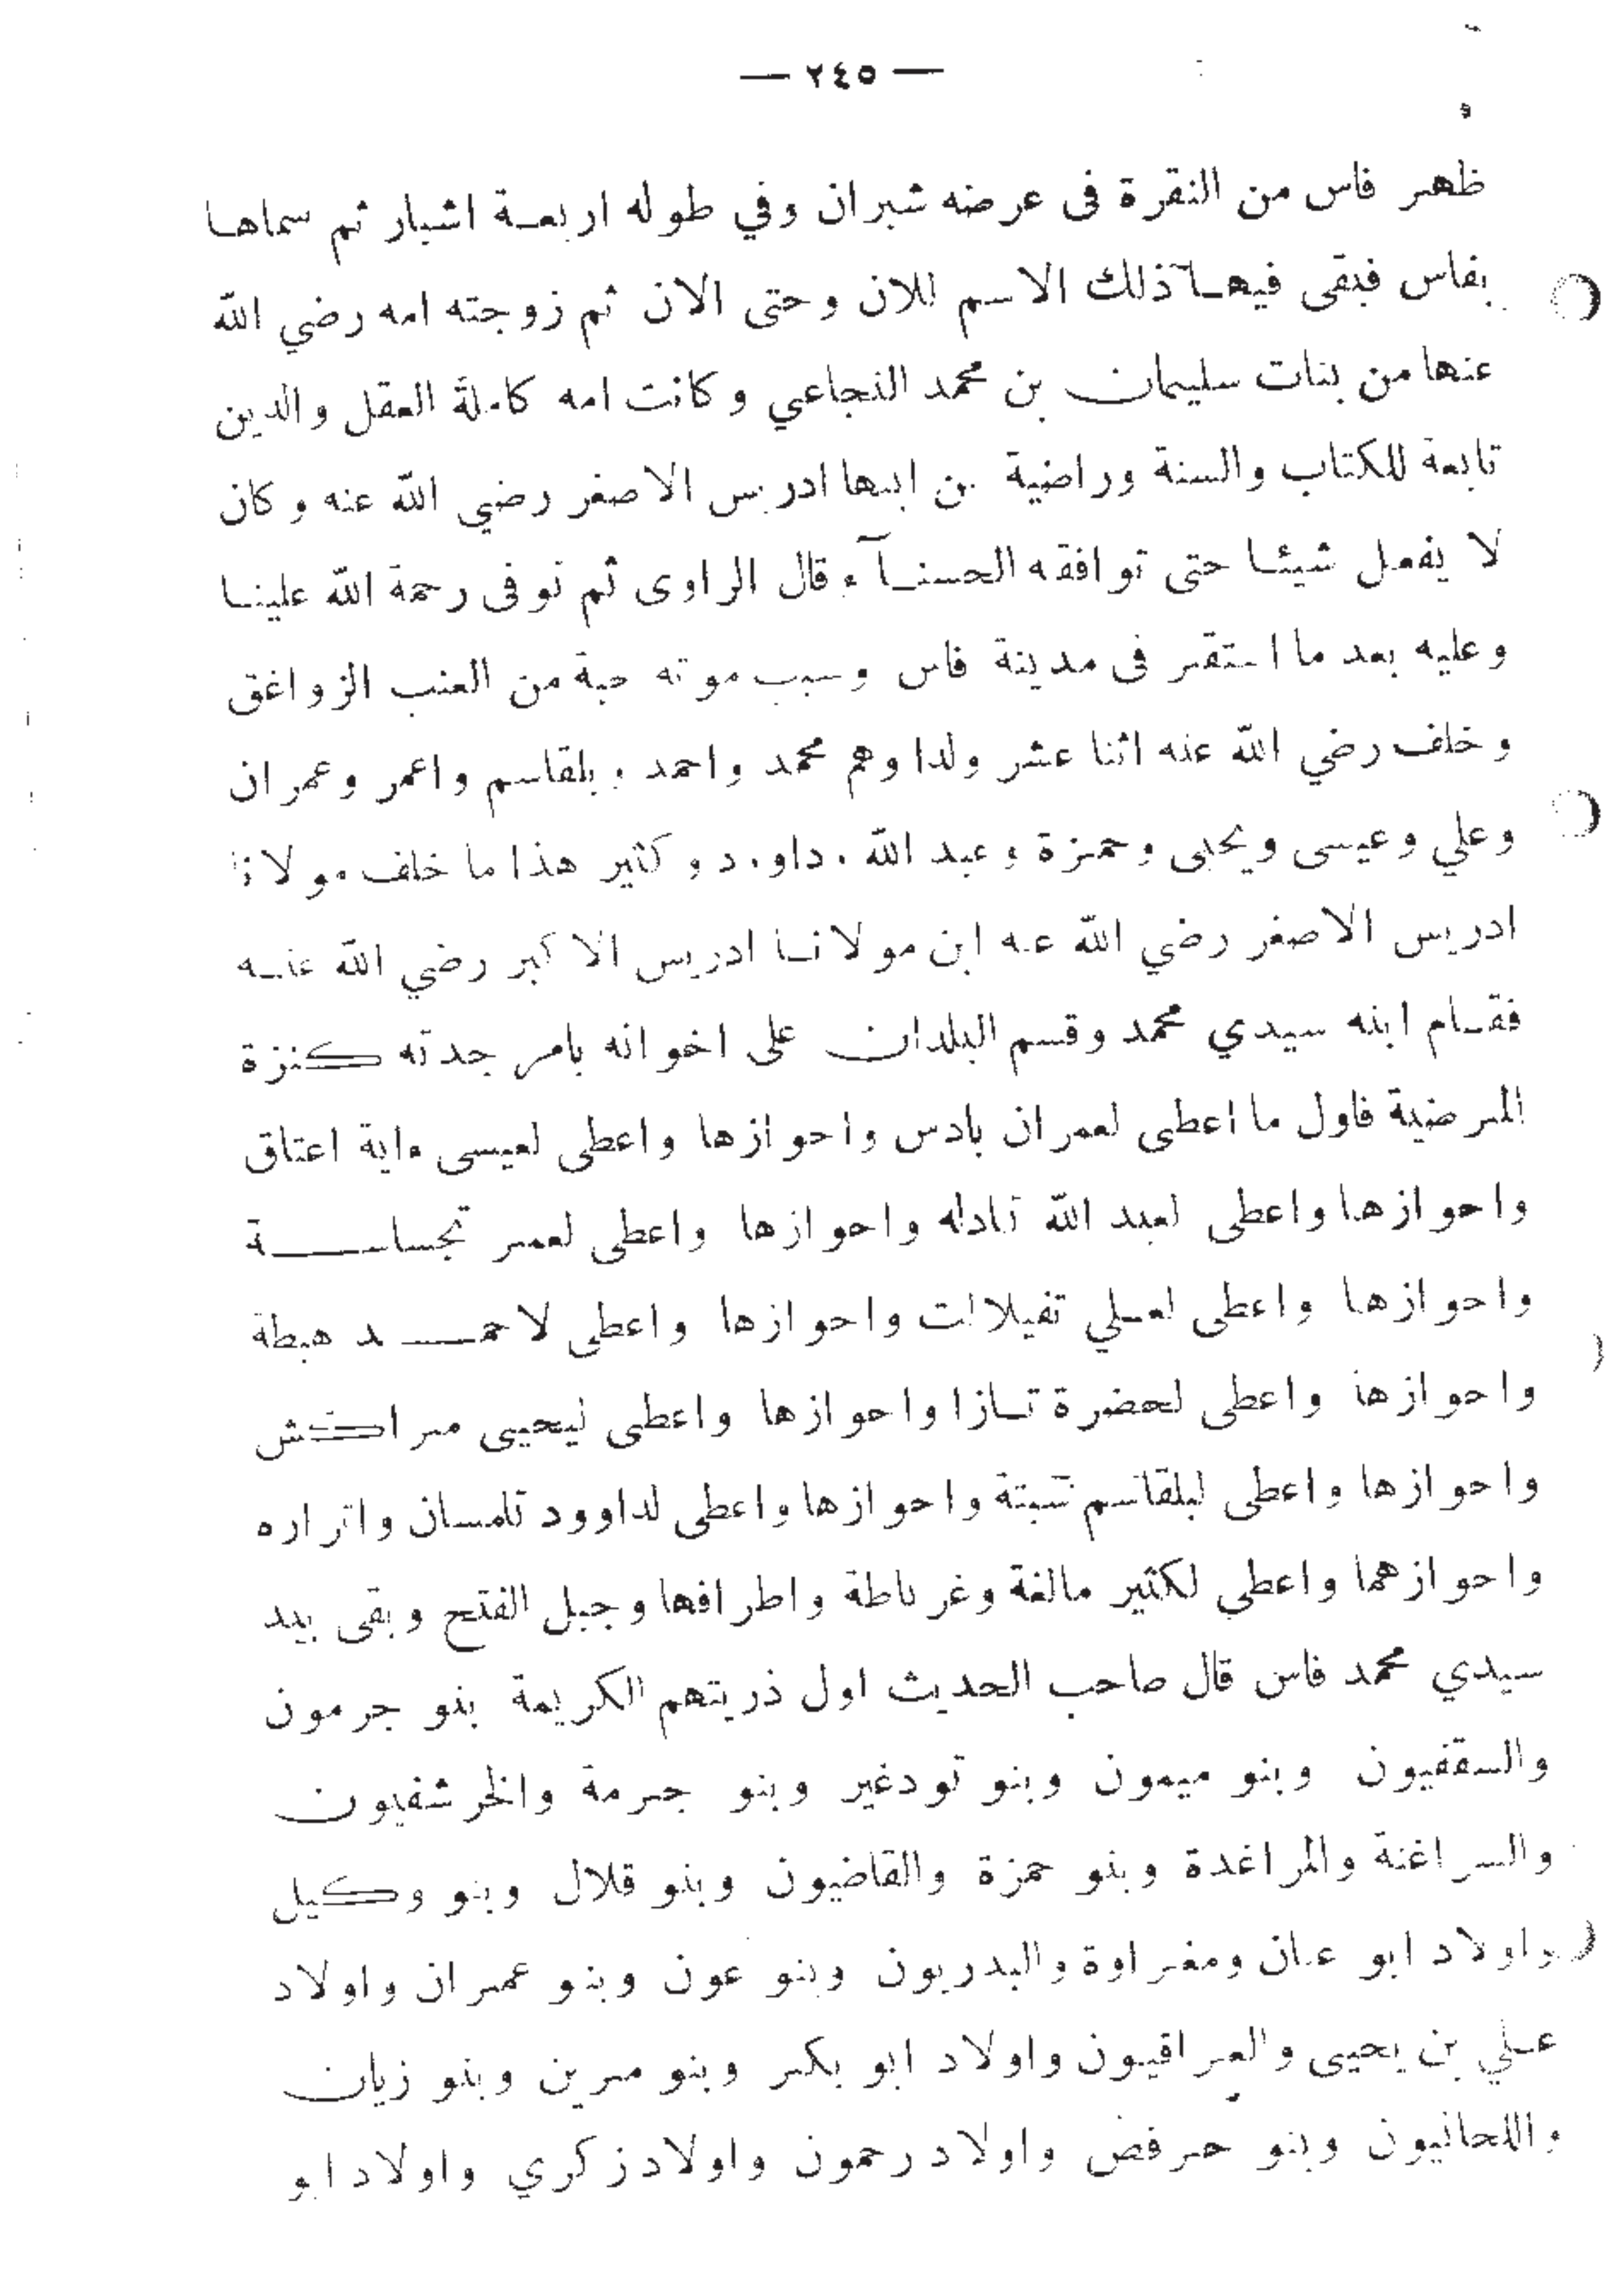 — ٢٤٥ —
ظهر فاس من النقرة فى عرضه شبران وفي طوله اربعة اشبار ثم سماها
بفاس فبقى فيها ذلك الاسم للان وحتى الان ثم زوجته امه رضي الله
عنها من بنات سليمان بن محمد النجاعي وكانت امه كاملة العقل والدين
تابعة للكتاب والسنة وراضية من ابنها ادريس الاصغر رضي الله عنه وكان
لا يفعل شيئا حتى توافقه الحسنآء قال الراوى ثم توفى رحمة الله علينا
وعليه بعد ما استقر فى مدينة فاس وسبب موته حبة من العنب الزواغق
وخلف رضي الله عنه اثنا عشر ولدا وهم محمد واحمد وبلقاسم واعمر وعمران
وعلي وعيسى ويحيى وحمزة وعبد الله وداوود وكثير هذا ما خلف مولانا
ادريس الاصغر رضي الله عنه ابن مولانا ادريس الاكبر رضي الله عنه
فقام ابنه سيدي محمد وقسم البلدان على اخوانه بامر جدته كنزة
المرضية فاول ما اعطى لعمران بادس واحوازها واعطى لعيسى واية اعتاق
واحوازها واعطى لعبد الله تادله واحوازها واعطى لعمر تجساسة
واحوازها واعطى لعلي تفيلالت واحوازها واعطى لاحمد هبطة
واحوازها واعطى لحضرة تازا واحوازها واعطى ليحيى مراكش
واحوازها واعطى لبلقاسم سبتة واحوازها واعطى لداوود تلمسان واتراره
واحوازهما واعطي لكثير مالغة وغرناطة واطرافها وجبل الفتح وبقى بيد
سيدي محمد فاس قال صاحب الحديث اول ذريتهم الكريمة بنو جرمون
والسقفيون وبنو ميمون وبنو تودغير وبنو جرمة والخرشفيون
والسراغنة والمراغدة وبنو حمزة والقاضيون وبنو قلال وبنو وكيل
واولاد ابو عنان ومغراوة والبدريون وبنو عون وبنو عمران واولاد
علي بن يحيى والعراقيون واولاد ابو بكر وبنو مرين وبنو زيان
واللحانيون وبنو حرفض واولاد رحمون واولاد زكري واولاد ابو